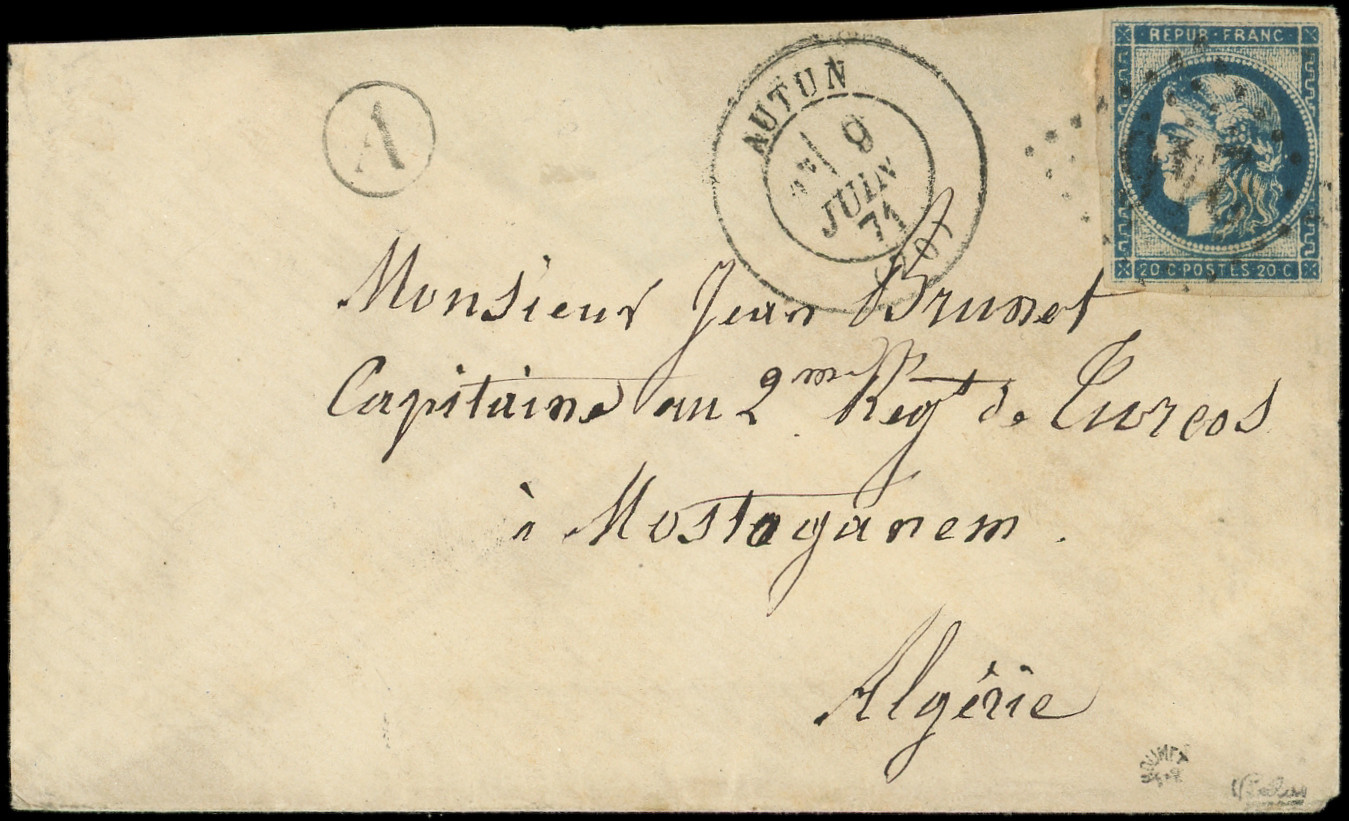 A
AUTUN
9
JUIN
71
REPUB·FRANC
20 C·POSTES 20 C
Monsieur Jean Brunet
Capitaine au 2me Regt de Turcos
à Mostaganem.
Algérie